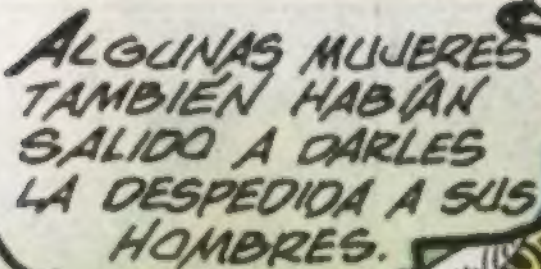 ALGUNAS MUJERES
TAMBIÉN HABÍAN
SALIDO A DARLES
LA DESPEDIDA A SUS
HOMBRES.